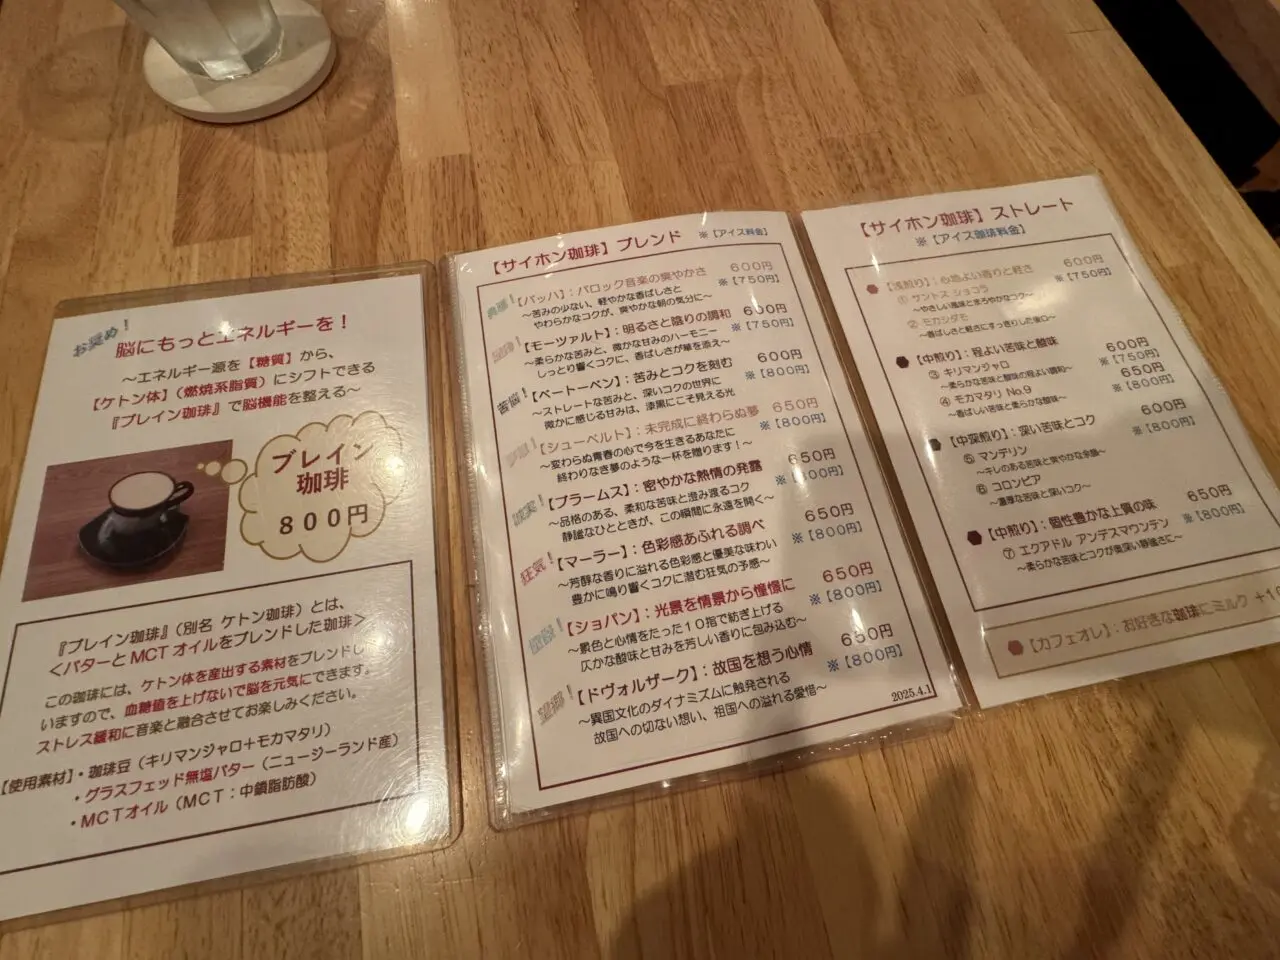 お奨め！
脳にもっとエネルギーを！
～エネルギー源を【糖質】から、
【ケトン体】（燃焼系脂質）にシフトできる
『ブレイン珈琲』で脳機能を整える～
ブレイン
珈琲
８００円
『ブレイン珈琲』（別名 ケトン珈琲）とは、
＜バターとMCTオイルをブレンドした珈琲＞
この珈琲には、ケトン体を産出する素材をブレンドし
いますので、血糖値を上げないで脳を元気にできます。
ストレス緩和に音楽と融合させてお楽しみください。
【使用素材】・珈琲豆（キリマンジャロ＋モカマタリ）
・グラスフェッド無塩バター（ニュージーランド産）
・MCTオイル（MCT：中鎖脂肪酸）
【サイホン珈琲】ブレンド ※【アイス料金】
【バッハ】：バロック音楽の爽やかさ ６００円
～苦みの少ない、軽やかな香ばしさと ※【750円】
やわらかなコクが、爽やかな朝の気分に～
【モーツァルト】：明るさと陰りの調和 ６００円
～柔らかな苦みと、微かな甘みのハーモニー ※【750円】
しっとり響くコクに、香ばしさが華を添え～
苦悩！【ベートーベン】：苦みとコクを刻む ６００円
～ストレートな苦みと、深いコクの世界に ※【800円】
微かに感じる甘みは、漆黒にこそ見える光
【シューベルト】：未完成に終わらぬ夢 ６５０円
～変わらぬ青春の心で今を生きるあなたに ※【800円】
終わりなき夢のような一杯を贈ります！～
誠実！【ブラームス】：密やかな熱情の発露 ６５０円
～品格のある、柔和な苦味と澄み渡るコク ※【800円】
静謐なひとときが、この瞬間に永遠を開く～
狂気！【マーラー】：色彩感あふれる調べ ６５０円
～芳醇な香りに溢れる色彩感と優美な味わい ※【800円】
豊かに鳴り響くコクに潜む狂気の予感～
【ショパン】：光景を情景から憧憬に ６５０円
～景色と心情をたった１０指で紡ぎ上げる ※【800円】
仄かな酸味と甘みを芳しい香りに包み込む～
望郷！【ドヴォルザーク】：故国を想う心情 ６５０円
～異国文化のダイナミズムに触発される ※【800円】
故国への切ない想い、祖国への溢れる愛惜～
2025.4.1
【サイホン珈琲】ストレート
※【アイス珈琲料金】
【浅煎り】：心地よい香りと軽さ ６００円
① サントス ショコラ ※【750円】
～やさしい風味とまろやかなコク～
② モカシダモ
～香ばしさと軽さにすっきりした後口～
【中煎り】：程よい苦味と酸味
③ キリマンジャロ ６００円
～柔らかな苦味と酸味の程よい調和～ ※【750円】
④ モカマタリ No.9 ６５０円
～香ばしい苦味と柔らかな酸味～ ※【800円】
【中深煎り】：深い苦味とコク ６００円
⑤ マンデリン ※【800円】
～キレのある苦味と爽やかな余韻～
⑥ コロンビア
～濃厚な苦味と深いコク～
【中煎り】：個性豊かな上質の味 ６５０円
⑦ エクアドル アンデスマウンテン ※【800円】
～柔らかな苦味とコクが奥深い静謐さに～
【カフェオレ】：お好きな珈琲にミルク ＋１０